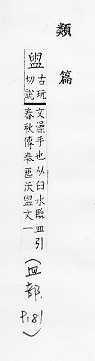 類篇
盥古玩切說文澡手也从𦥑水臨皿引春秋傳奉匜沃盥文一
(皿部.P.181)